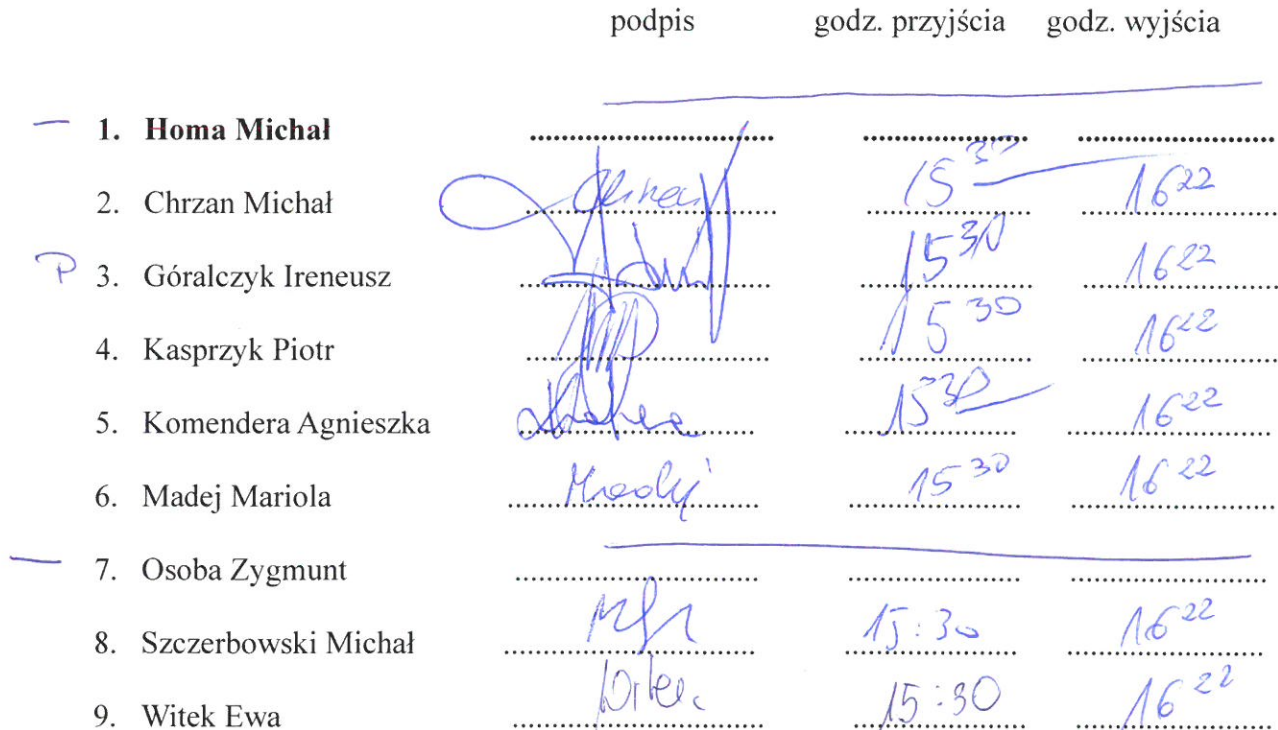 podpis godz. przyjścia godz. wyjścia
— 1. Homa Michał
2. Chrzan Michał 15 30 16 22
P 3. Góralczyk Ireneusz 15 30 16 22
4. Kasprzyk Piotr 15 30 16 22
5. Komendera Agnieszka 15 30 16 22
6. Madej Mariola Madej 15 30 16 22
— 7. Osoba Zygmunt
8. Szczerbowski Michał 15:30 16 22
9. Witek Ewa Witek 15:30 16 22